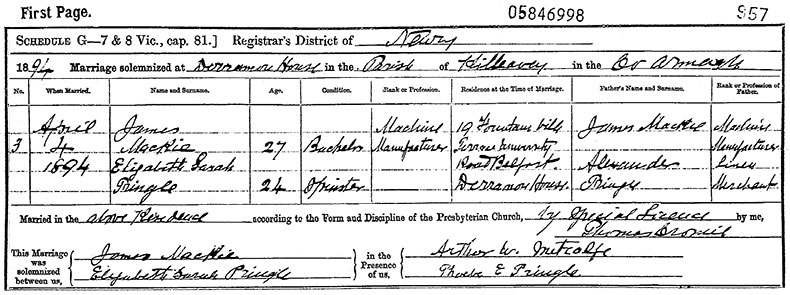 First Page. 05846998 957
SCHEDULE G—7 & 8 Vic., cap. 81.] Registrar's District of Newry
1894 Marriage solemnized at Derramore House in the Parish of Killeavey in the Co Armagh
No. When Married. Name and Surname. Age. Condition. Rank or Profession. Residence at the Time of Marriage. Father's Name and Surname. Rank or Profession of Father.
April James Machine 19 Fountain ville James Mackie Machine
3 4 Mackie 27 Bachelor Manufacturer Terrace University Manufacturer
1894 Elizabeth Sarah Road Belfast Alexander Linen
Pringle 24 Spinster Derramore House Pringle Merchant
Married in the above Residence according to the Form and Discipline of the Presbyterian Church, by Special Licence by me,
Thomas Cromie
This Marriage was solemnized between us,
James Mackie
Elizabeth Sarah Pringle
in the Presence of us,
Arthur W. Metcalfe
Phoebe E Pringle